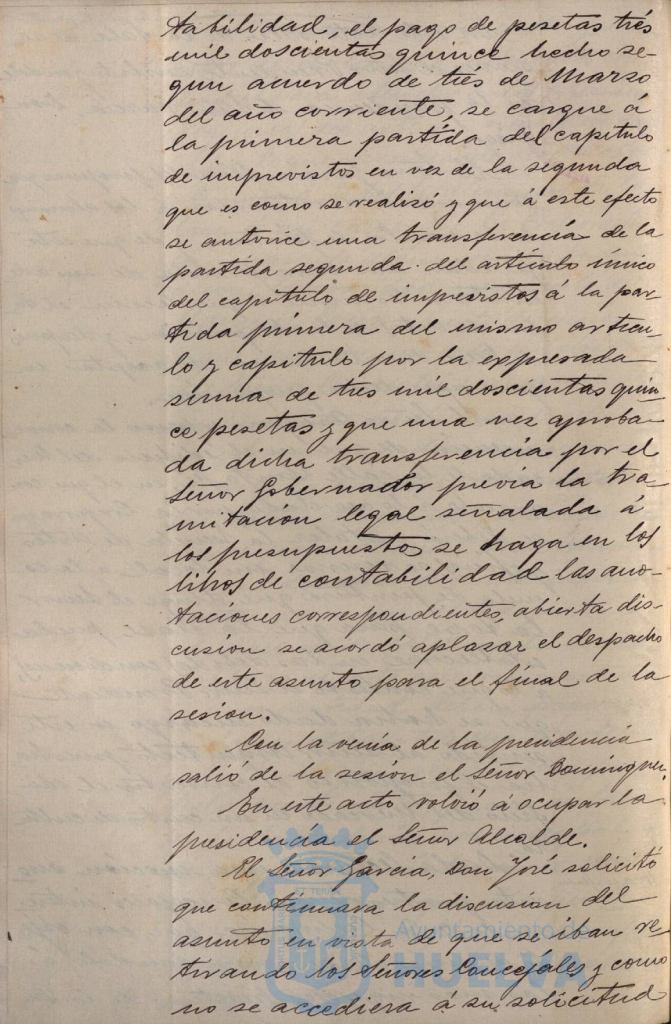 tabilidad, el pago de pesetas trés
mil doscientas quince hecho se-
gun acuerdo de trés de Marzo
del año corriente, se cargue á
la primera partida del capitulo
de imprevistos en vez de la segunda
que es como se realizó y que á este efecto
se autorice una transferencia de la
partida segunda del artículo único
del capitulo de imprevistos á la par-
tida primera del mismo articu-
lo y capitulo por la expresada
suma de tres mil doscientas quin-
ce pesetas y que una vez aproba-
da dicha transferencia por el
Señor Gobernador previa la tra-
mitacion legal señalada á
los presupuestos se haga en los
libros de contabilidad las ano-
taciones correspondientes, abierta dis-
cusion se acordó aplazar el despacho
de este asunto para el final de la
sesion.
Con la venia de la presidencia
salió de la sesión el Señor Dominguez.
En este acto volvió á ocupar la
presidencia el Señor Alcalde.
El Señor García, Don José solicitó
que continuara la discusion del
asunto en vista de que se iban re-
tirando los Señores Concejales y como
no se accediera á su solicitud
Ayuntamiento de
HUELVA